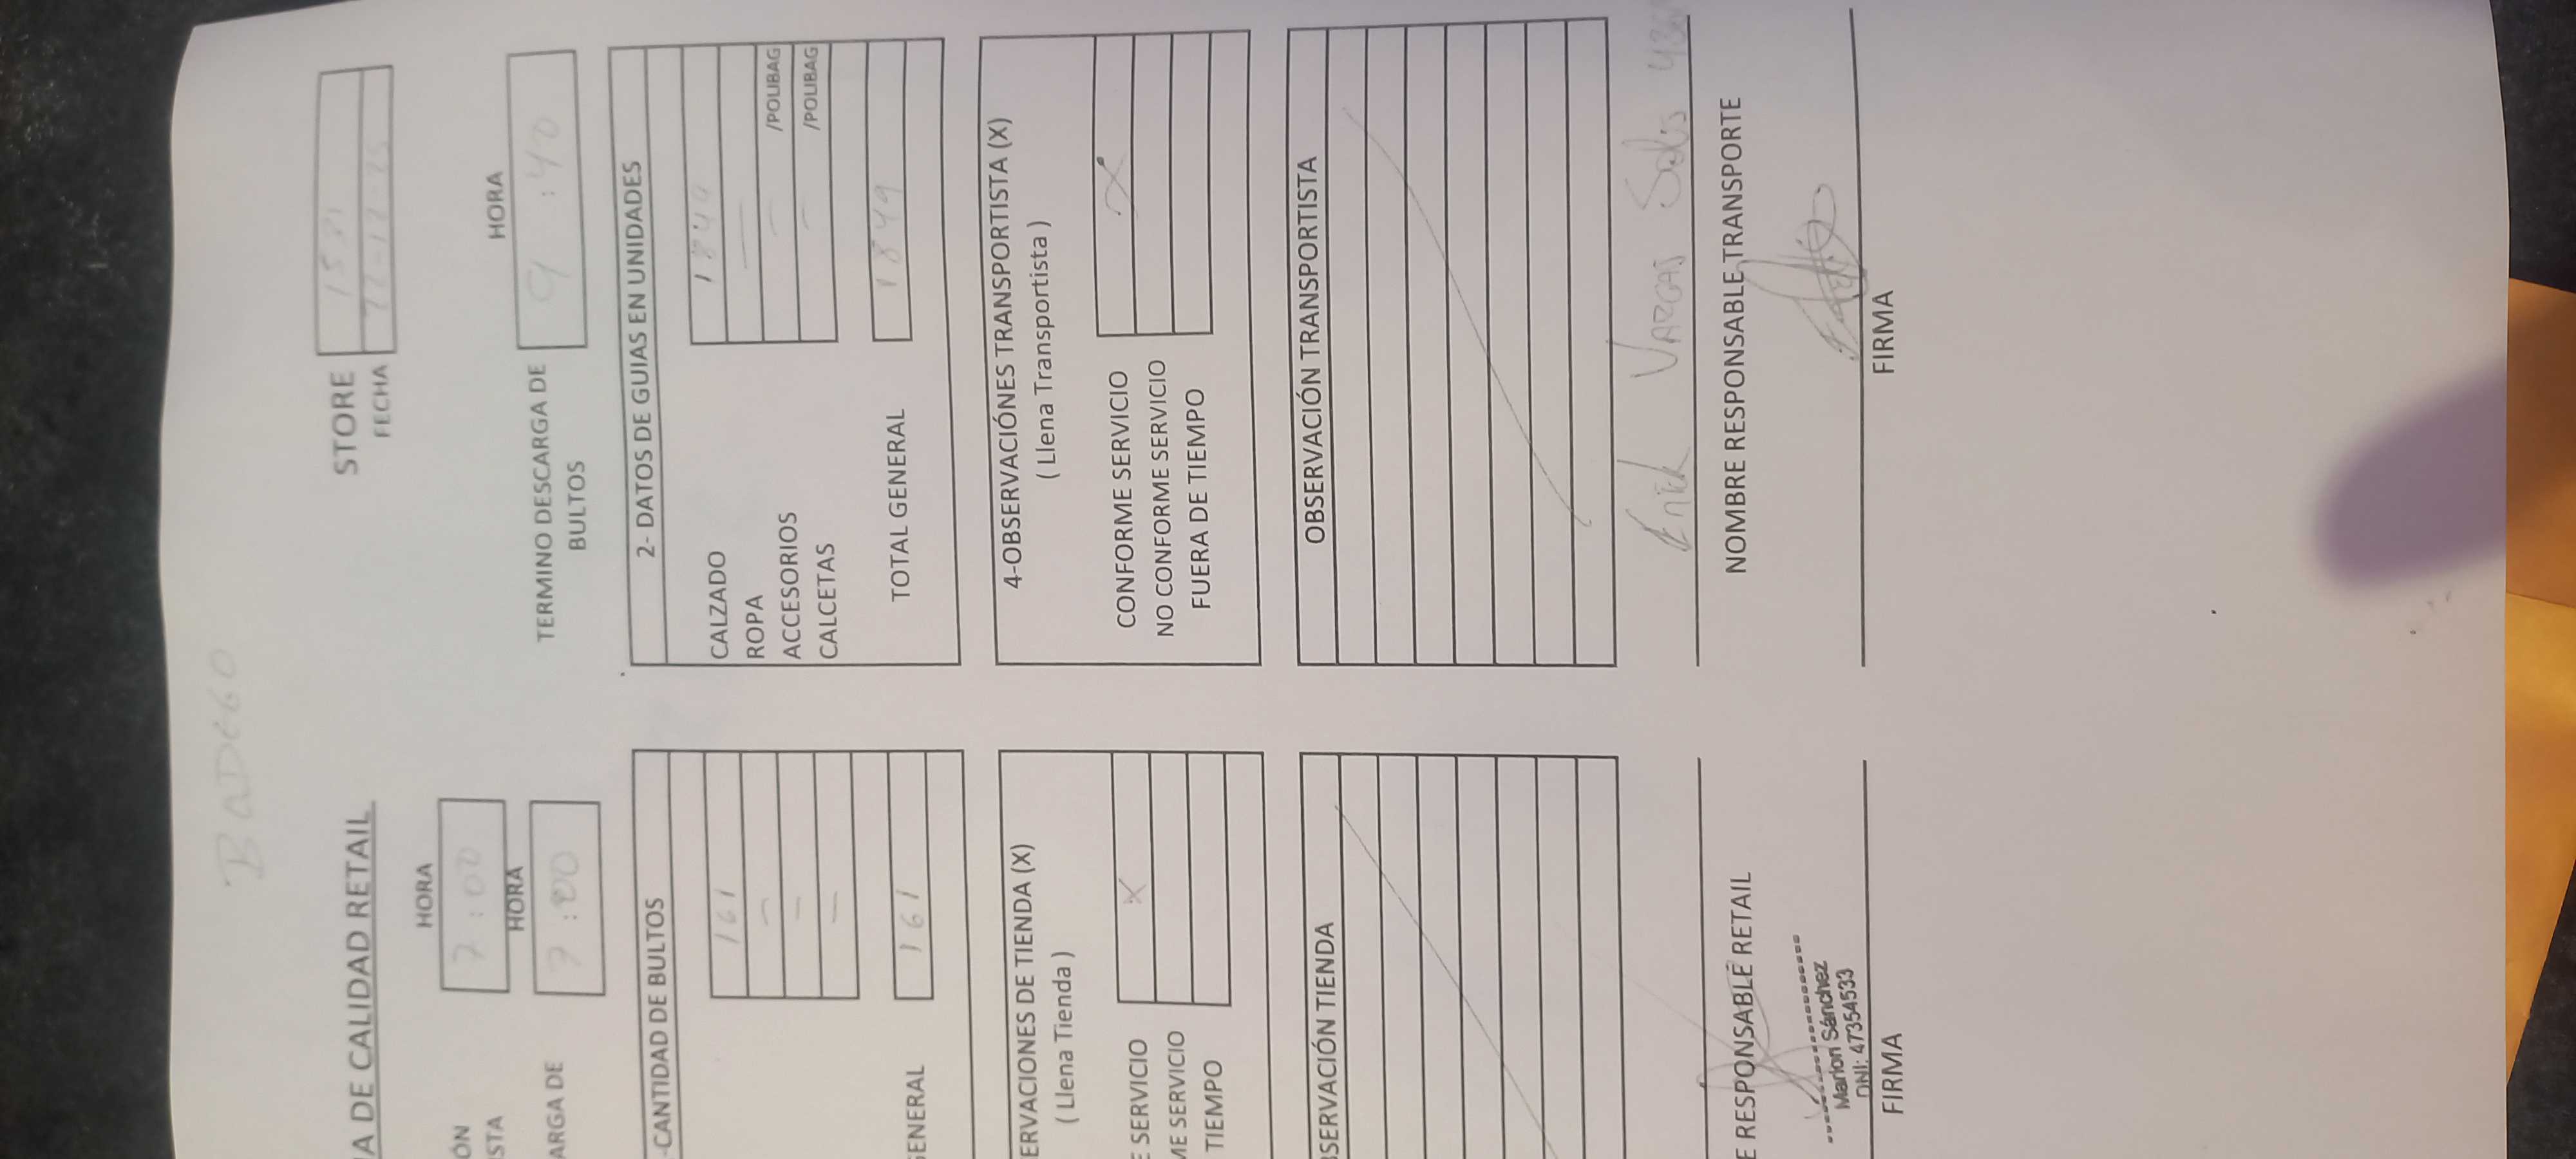 BADEGO
STORE 1521
FECHA 22-12-25
A DE CALIDAD RETAIL
HORA
ÓN
STA
7:00
HORA
ARGA DE
7:00
HORA
TERMINO DESCARGA DE
BULTOS
9:40
-CANTIDAD DE BULTOS
161
—
—
—
GENERAL 161
2- DATOS DE GUIAS EN UNIDADES
CALZADO 1849
ROPA —
ACCESORIOS — /POLIBAG
CALCETAS — /POLIBAG
TOTAL GENERAL 1849
ERVACIONES DE TIENDA (X)
( Llena Tienda )
E SERVICIO X
ME SERVICIO
TIEMPO
4-OBSERVACIÓNES TRANSPORTISTA (X)
( Llena Transportista )
CONFORME SERVICIO X
NO CONFORME SERVICIO
FUERA DE TIEMPO
BSERVACIÓN TIENDA
OBSERVACIÓN TRANSPORTISTA
E RESPONSABLE RETAIL
Marlon Sánchez
DNI: 47354533
FIRMA
Erick Vargas Solis
NOMBRE RESPONSABLE TRANSPORTE
FIRMA